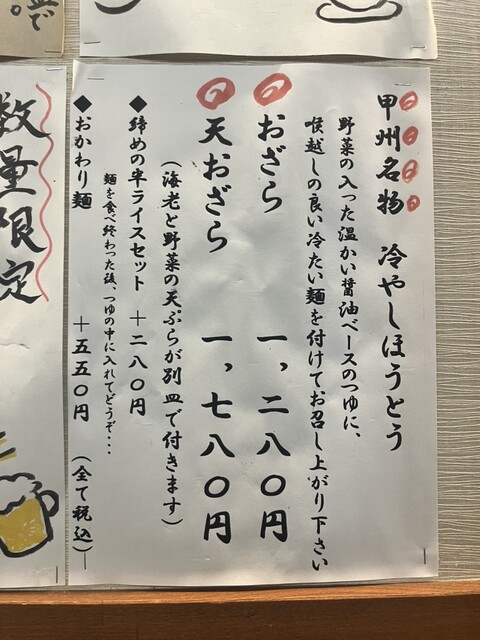 甲州名物　冷やしほうとう
野菜の入った温かい醤油ベースのつゆに、
喉越しの良い冷たい麺を付けてお召し上がり下さい
おざら　一,二八〇円
天おざら　一,七八〇円
(海老と野菜の天ぷらが別皿で付きます)
◆締めの半ライスセット　＋二八〇円
麺を食べ終わった後、つゆの中に入れてどうぞ・・・
◆おかわり麺　＋五五〇円　(全て税込)
数量限定
で